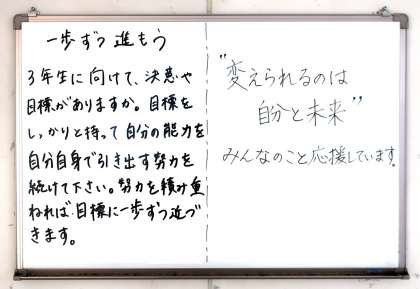 一歩ずつ進もう
3年生に向けて、決意や
目標がありますか。目標を
しっかりと持って自分の能力を
自分自身で引き出す努力を
続けて下さい。努力を積み重
ねれば、目標に一歩ずつ近づ
きます。
"変えられるのは
自分と未来"
みんなのこと応援しています。